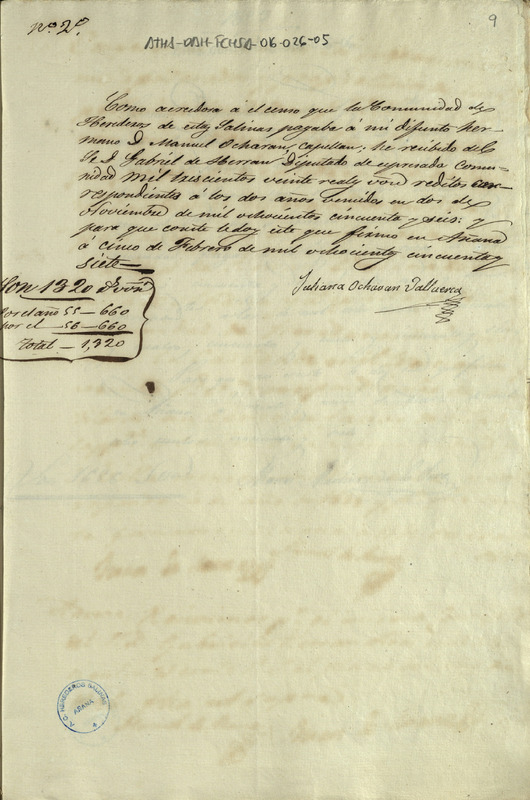 nº 2º
9
ATHA-DAH-FCHSA-016-026-05
Como acredora á el censo que la Comunidad de
Herederos de estas Salinas pagaba á mi difunto her-
mano D. Manuel Ocharan, capellan; he recibido del
Sr D. Gabriel de Herran Diputado de espresada comu-
nidad mil trescientos veinte reals von reditos cor-
respondientes á los dos años vencidos en dos de
Noviembre de mil ochocientos cincuenta y seis: y
para que conste le doy este que firmo en Añana
á cinco de Febrero de mil ochocientos cincuenta y
siete
Son 1320 Rs von
por el año 55 — 660
por el 56 — 660
Total — 1,320
Juliana Ocharan Valluerca
A.C. HEREDEROS SALINAS
AÑANA